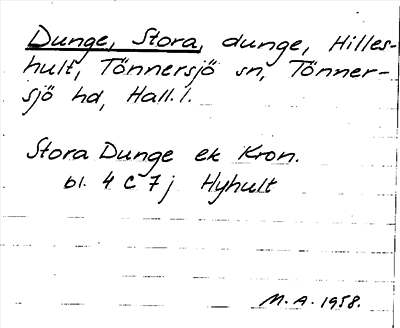 Dunge, Stora, dunge, Hilles-
hult, Tönnersjö sn, Tönner-
sjö hd, Hall. l.
Stora Dunge ek Kron.
bl. 4 C 7 j Hyhult
M.A. 1958.